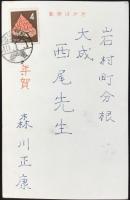 郵便はがき
岩村町分根
大成
西尾先生
年賀
森川正康
4